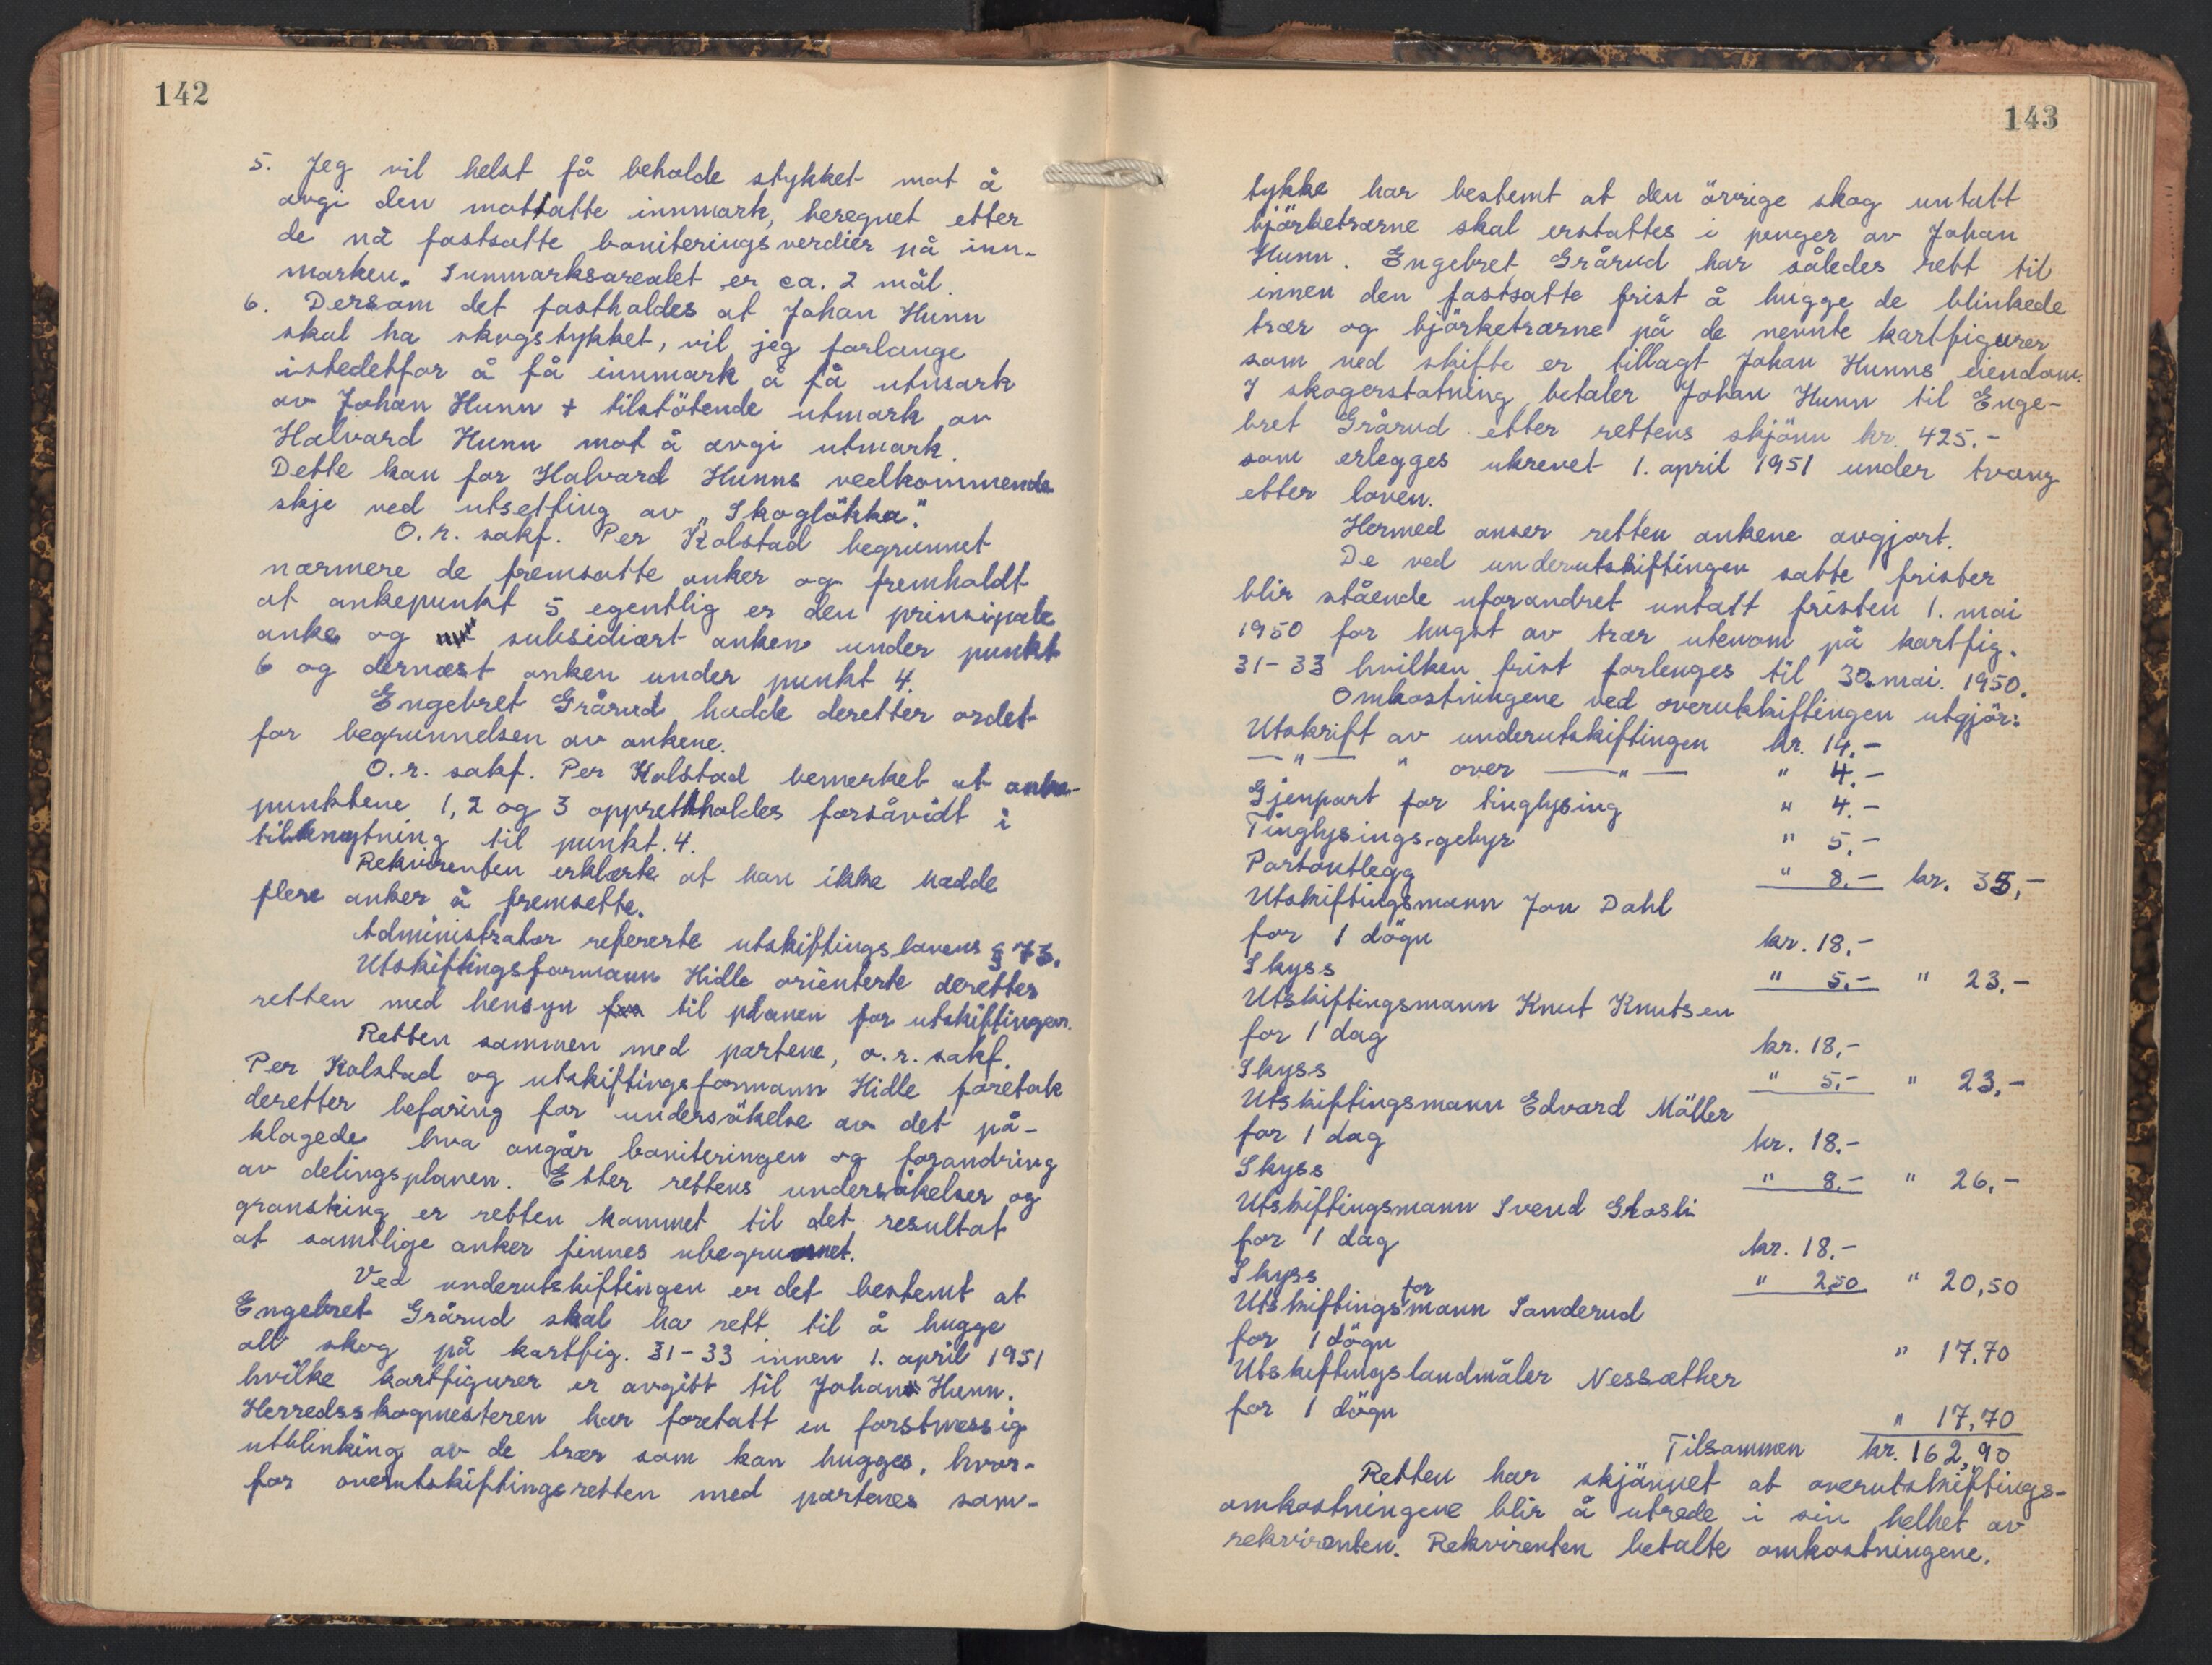 142
5. Jeg vil helst få beholde stykket mot å
avgi den mottatte innmark, beregnet etter
de nå fastsatte boniteringsverdier på inn-
marken. Innmarksarealet er ca. 2 mål.
6. Dersom det fastholdes at Johan Hunn
skal ha skogstykket, vil jeg forlange
istedetfor å få innmark å få utmark
av Johan Hunn + tilstötende utmark av
Halvard Hunn mot å avgi utmark.
Dette kan for Halvard Hunns vedkommende
skje ved utsetting av „Skoglökka".
O.r. sakf. Per Kolstad begrunnet
nærmere de fremsatte anker og fremholdt
at ankepunkt 5 egentlig er den prinsipale
anke og subsidiært anken under punkt
6 og dernæst anken under punkt 4.
Engebret Grårud hadde deretter ordet
for begrunnelsen av ankene.
O.r. sakf. Per Kolstad bemerket at anke-
punktene 1, 2 og 3 opprettholdes forsåvidt i
tilknytning til punkt. 4.
Rekvirenten erklærte at han ikke hadde
flere anker å fremsette.
Administrator refererte utskiftingslovens § 73.
Utskiftingsformann Hidle orienterte deretter
retten med hensyn for til planen for utskiftingen.
Retten sammen med partene, o.r. sakf.
Per Kolstad og utskiftingsformann Hidle foretok
deretter befaring for undersökelse av det på-
klagede hva angår boniteringen og forandring
av delingsplanen. Etter rettens undersökelser og
gransking er retten kommet til det resultat
at samtlige anker finnes ubegrunnet.
Ved underutskiftingen er det bestemt at
Engebret Grårud skal ha rett til å hugge
all skog på kartfig. 31-33 innen 1. april 1951
hvilke kartfigurer er avgitt til Johan Hunn.
Herredsskogmesteren har foretatt en forstmessig
utblinking av de trær som kan hugges, hvor-
for overutskiftingsretten med partenes sam-
143
tykke har bestemt at den övrige skog untatt
björketrærne skal erstattes i penger av Johan
Hunn. Engebret Grårud har således rett til
innen den fastsatte frist å hugge de blinkede
trær og björketrærne på de nevnte kartfigurer
som ved skifte er tillagt Johan Hunns eiendom.
I skogerstatning betaler Johan Hunn til Enge-
bret Grårud etter rettens skjönn kr. 425.-
som erlegges ukrevet 1. april 1951 under tvang
etter loven.
Hermed anser retten ankene avgjort.
De ved underutskiftingen satte frister
blir stående uforandret untatt fristen 1. mai
1950 for hugst av trær utenom på kartfig.
31-33 hvilken frist forlenges til 30. mai. 1950.
Omkostningene ved overutskiftingen utgjör:
Utskrift av underutskiftingen kr. 14.-
—"— " over —"— " 4.-
Gjenpart for tinglysing " 4.-
Tinglysings-gebyr " 5.-
Portoutlegg " 8.- kr. 35,-
Utskiftingsmann Jon Dahl
for 1 dögn kr. 18.-
Skyss " 5.- " 23.-
Utskiftingsmann Knut Knutsen
for 1 dag kr. 18.-
Skyss " 5.- " 23,-
Utskiftingsmann Edvard Möller
for 1 dag kr. 18.-
Skyss " 8.- " 26.-
Utskiftingsmann Svend Grosli
for 1 dag kr. 18.-
Skyss " 2,50 " 20,50
Utskiftingsformann Sanderud
for 1 dögn " 17.70
Utskiftingslandmåler Nessæther
for 1 dögn " 17,70
Tilsammen kr. 162,90
Retten har skjönnet at overutskiftings-
omkostningene blir å utrede i sin helhet av
rekvirenten. Rekvirenten betalte omkostningene.